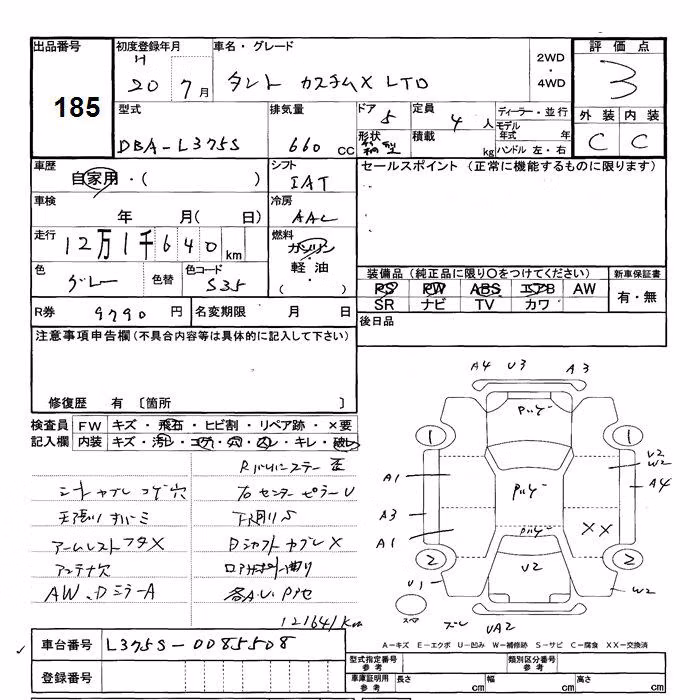 出品番号
185
初度登録年月
H
20 7月
車名・グレード
タント カスタムX LTD
2WD
・
4WD
評価点
3
外装 内装
C C
型式
DBA-L375S
排気量
660 CC
ドア 5
形状
定員 4人
積載 kg
ディーラー・並行
モデル
年式 年
ハンドル 左・右
車歴
自家用・( )
シフト
IAT
セールスポイント (正常に機能するものに限ります)
車検
年 月( 日)
冷房
AAC
走行
12万1千640km
燃料
ガソリン
軽・油
( )
色
グレー
色替
色コード
S35
装備品(純正品に限り○をつけてください)
PS PW ABS エアB AW
SR ナビ TV カワ
新車保証書
有・無
R券 9790円
名変期限 月 日
後日品
注意事項申告欄(不具合内容等は具体的に記入して下さい)
修復歴 有 〔箇所 〕
検査員
記入欄
FW キズ・飛石・ヒビ割・リペア跡・×要
内装 キズ・汚レ・コゲ・穴・スレ・キレ・破レ
シートカブレ コゲ穴
天張リ
アームレストフタX
アンテナ穴
AW、DミラーA
センターピラーU
下廻りS
DシャフトカブレX
121641km
A4 U3 A3
1 1
A1
A3
A1
2 2
U2
W2
A4
XX
U1
W2
U2
UA2
スペア
A=キズ E=エクボ U=凹み W=補修跡 S=サビ C=腐食 XX=交換済
車台番号 L375S-0085508
登録番号
型式指定番号
参考
類別区分番号
参考
車庫証明用
参考
長さ cm 幅 cm 高さ cm